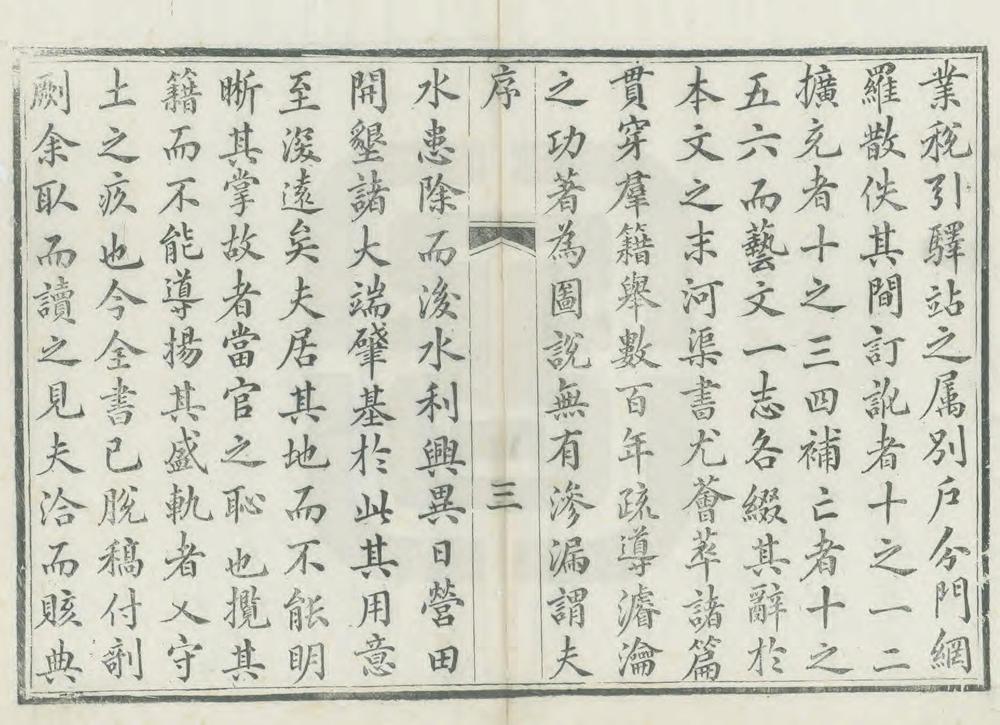 業稅引驛站之属别戶分門網
羅散佚其間訂訛者十之一二
擴充者十之三四補亡者十之
五六而藝文一志各綴其辭於
本文之末河渠書尤薈萃諸篇
貫穿羣籍舉數百年疏導濬瀹
之功著為圖說無有滲漏謂夫
序
三
水患除而浚水利興異日營田
開墾諸大端肇基於此其用意
至深遠矣夫居其地而不能明
晰其掌故者當官之恥也攬其
籍而不能導揚其盛軌者乂守
土之疚也今全書已脫稿付剞
劂余取而讀之見夫洽而賅典